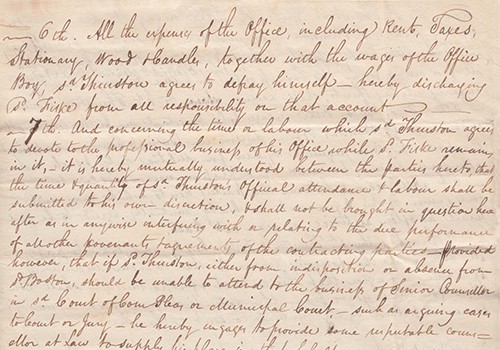 — 6th. All the expenses of the Office, including Rent, Taxes,
Stationary, Wood & Candles, together with the wages of the Office
Boy, sd Thurston agrees to defray himself — hereby discharging
sd. Fiske from all responsibility on that account
— 7th. And concerning the time or labour which sd Thurston agrees
to devote to the professional business of his Office while sd. Fiske remains
in it, — it is hereby mutually understood between the parties hereto, that
the time & quantity of sd. Thurston's Official attendance & labour shall be
submitted to his own discretion, & shall not be brought in question here
after as in anywise interfering with or relating to the due performance
of all other covenants & agreements, of the contracting parties provided
however, that if sd Thurston, either from indisposition or absence from
sd Boston, should be unable to attend to the business of Senior Counsellor
in sd. Court of Com Pleas or Municipal Court — such as arguing cases
to Court or Jury — he hereby engages to provide some reputable coun-
sellor at Law to supply his place in that behalf